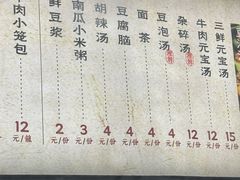 肉小笼包
12
元/笼
鲜豆浆
2
元/份
南瓜小米粥
3
元/份
胡辣汤
4
元/份
豆腐脑
4
元/份
面茶
4
元/份
豆泡汤
4
元/份
杂碎汤
12
元/份
牛肉元宝汤
12
元/份
三鲜元宝汤
15
元/份